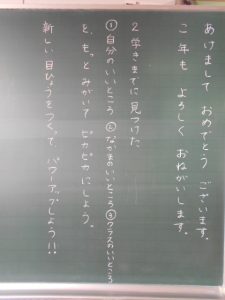 あけまして おめでとう ございます。
こ年も よろしく おねがいします。
2学きまでに見つけた
①自分のいいところ ②なかまのいいところ ③クラスのいいところ
を、もっとみがいて ピカピカにしよう。
新しい目ひょうをつくって パワーアップしよう!!